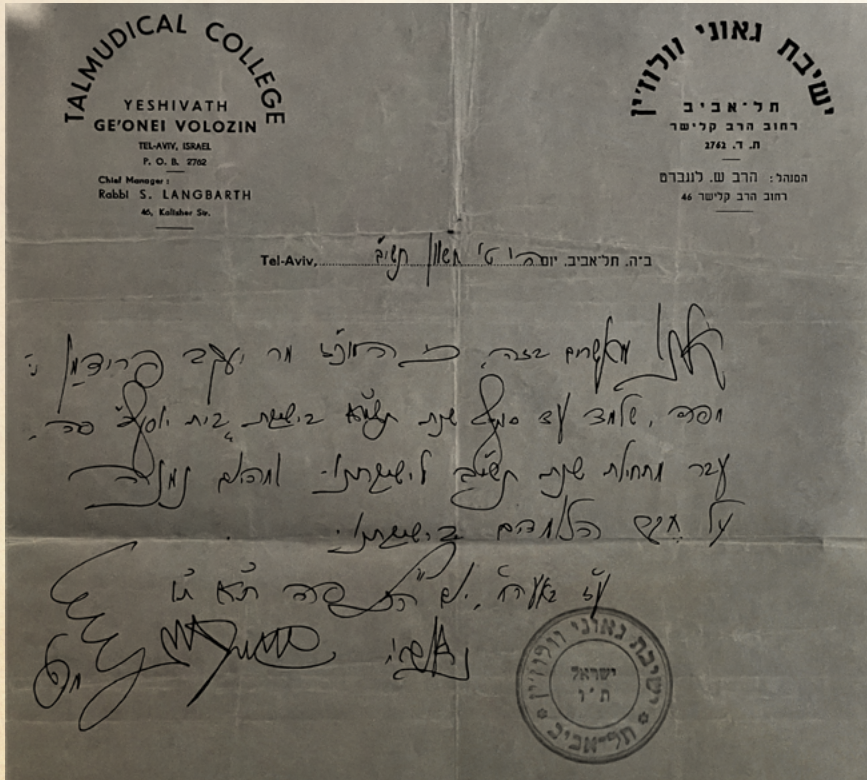 TALMUDICAL COLLEGE
YESHIVATH
GE'ONEI VOLOZIN
TEL-AVIV, ISRAEL
P. O. B. 2762
Chief Manager :
Rabbi S. LANGBARTH
46, Kalisher Str.
ישיבת גאוני וולוז'ין
תל־אביב
רחוב הרב קלישר
ת. ד. 2762
המנהל: הרב ש. לנגברט
רחוב הרב קלישר 46
Tel-Aviv, ב״ה. תל־אביב. יום ה' ט' חשון תשי״ב
מאשרים בזה, כי המוכ״ז מר יעקב פרידמן
שלמד עד סוף שנת תשי״א בישיבת "בית יוסף" פה
עבר מתחילת שנת תשי״ב לישיבתנו. ומהיום נמנה
על חבר הלומדים בישיבתנו.
ישיבת גאוני וולוז'ין
ישראל
ת״ו
תל־אביב